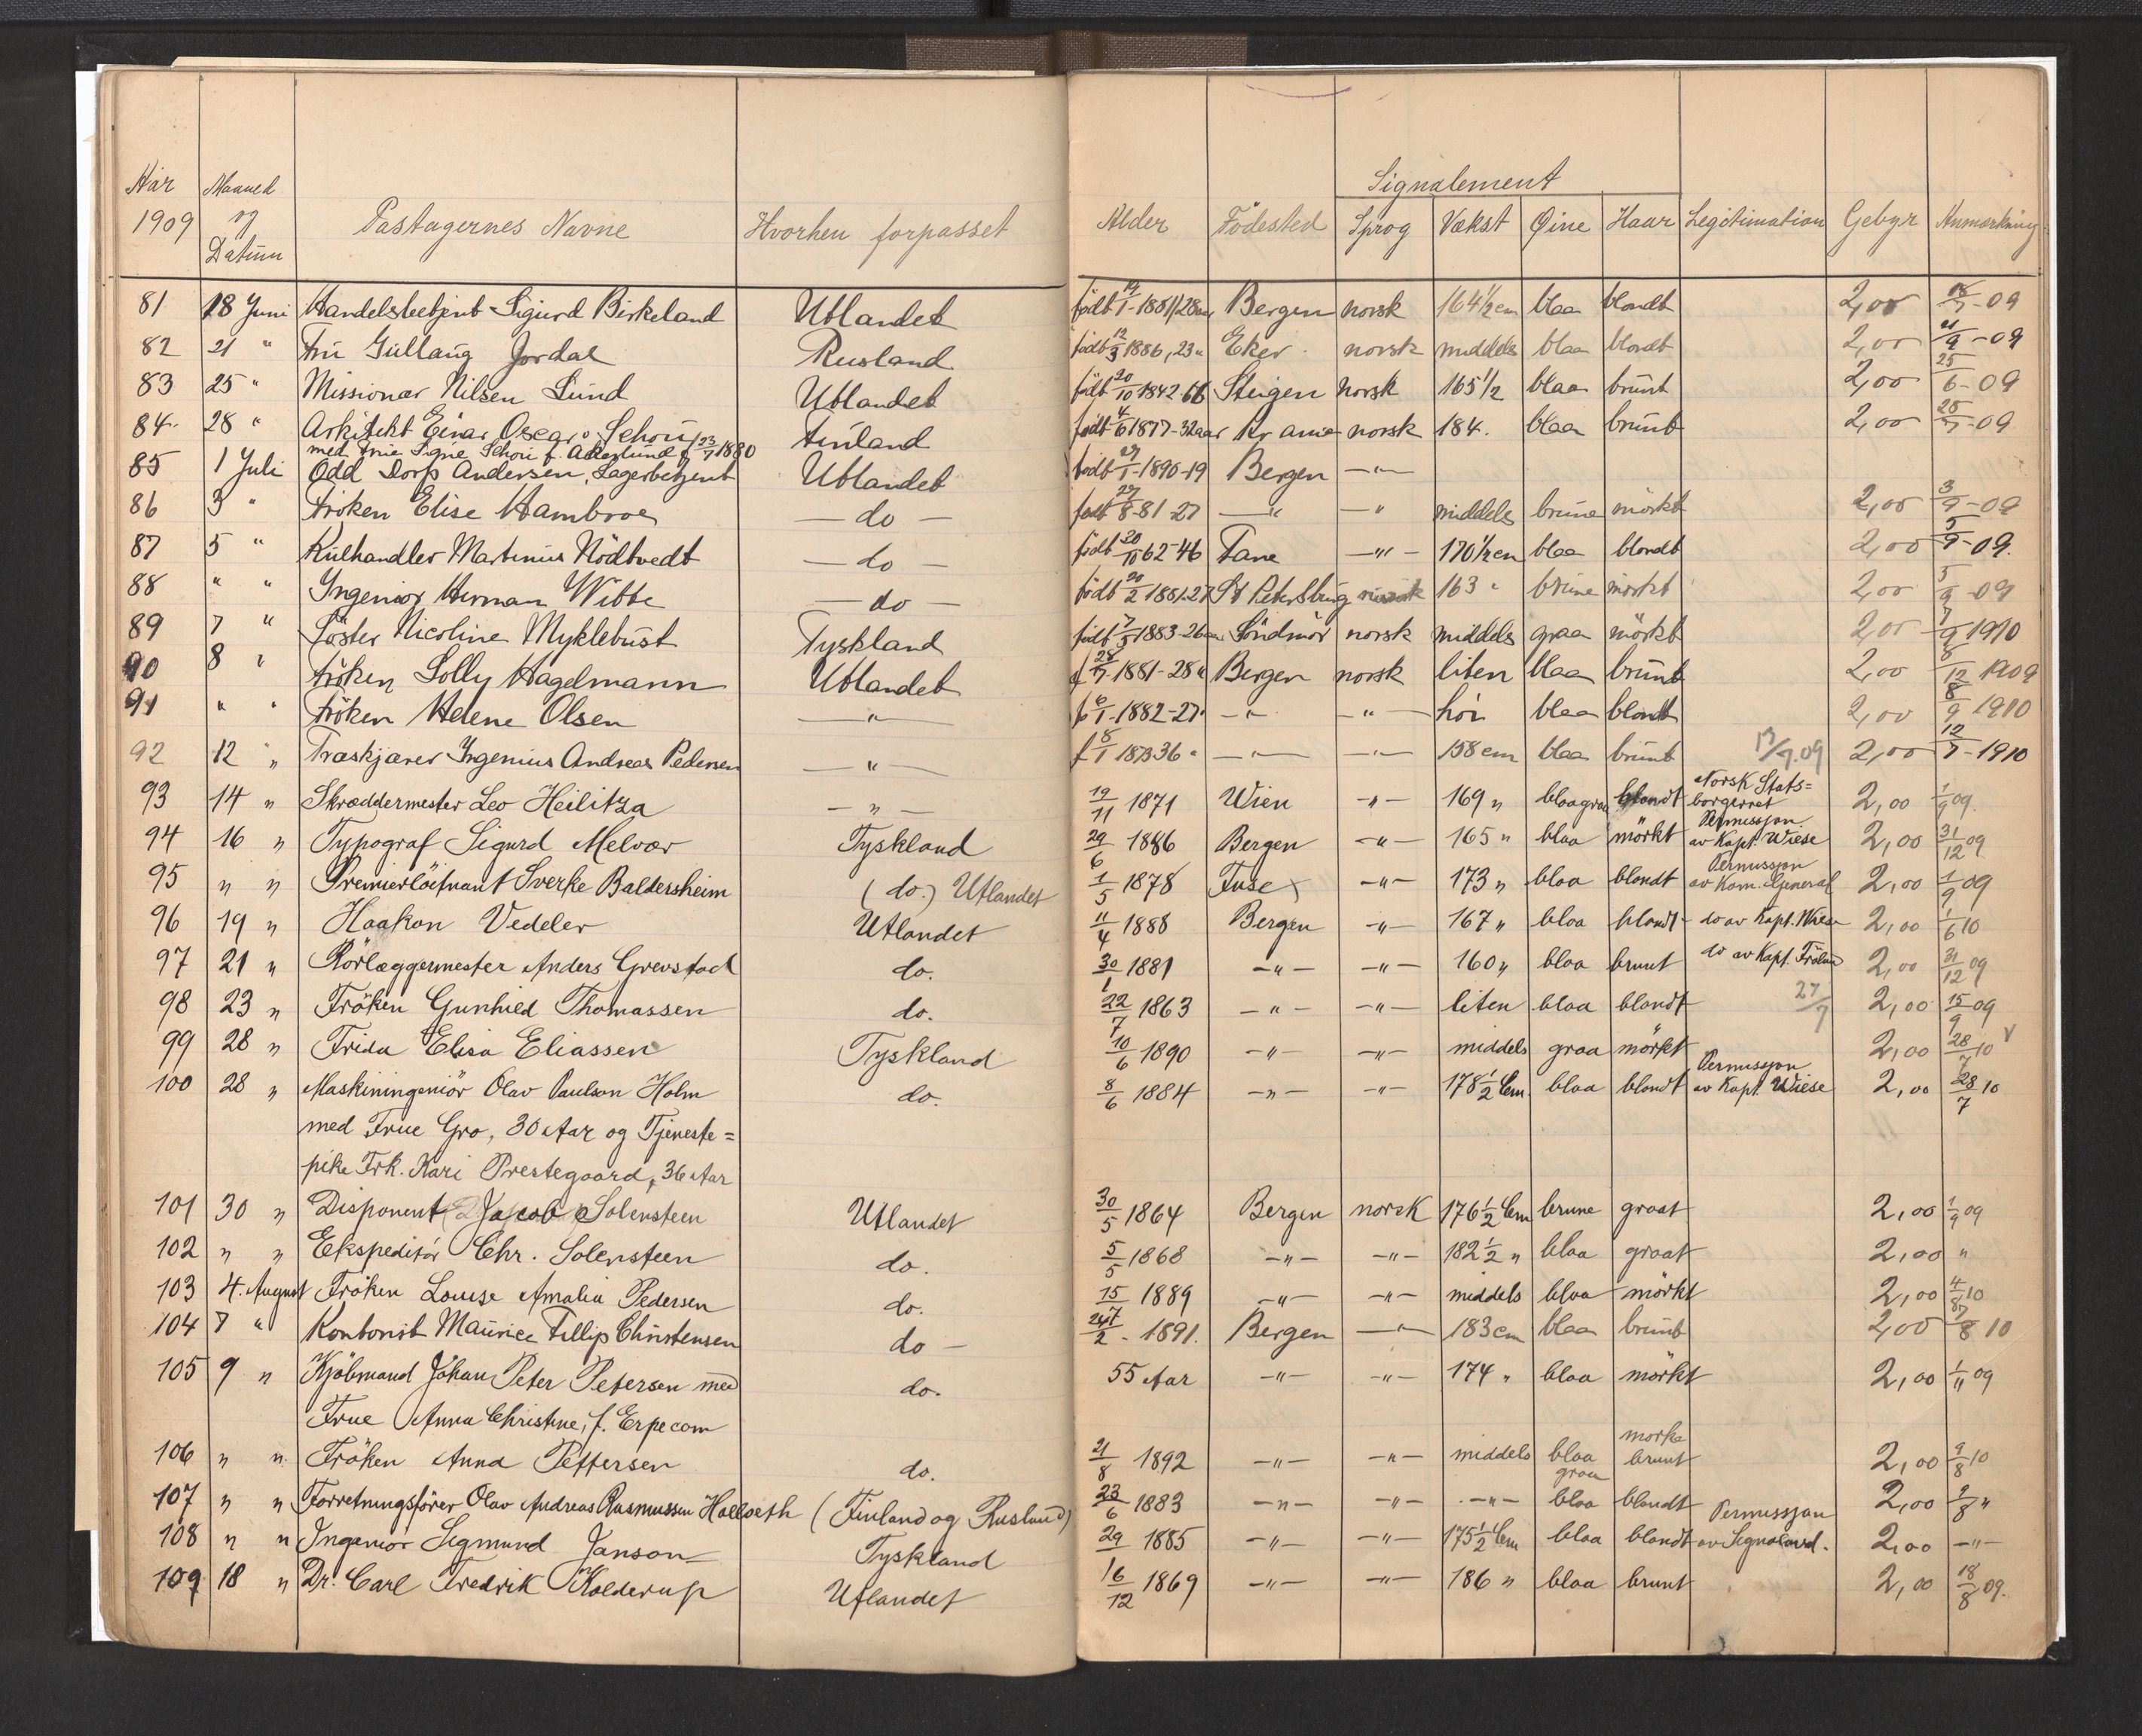 Signalement
Aar 1909 Maaned og Datum Passagernes Navne Hvorhen forpasset Alder Födested Sprog Vækst Øine Haar Legitimation Gebyr Anmærkning
81 18 Juni Handelsbetjent Sigurd Birkeland Utlandet födt 1881/28 Bergen norsk 164 1/2 cm blaa blondt 2,00 18/7-09
82 21 " Fru Gullaug Jordal Rusland födt 12/3 1886, 23 " Eker norsk middels blaa blondt 2,00 21/9-09
83 25 " Missionær Nilsen Lund Utlandet födt 20/10 1842-66 Steigen norsk 165 1/2 blaa brunt 2,00 25/6-09
84 28 " Arkitekt Einar Oscar Schou Finland födt 4/6 1877-32 aar Kr ania norsk 184. blaa brunt 2,00 28/7-09
med Frue Signe Schou f. Åkerlund f 23/7 1880
85 1 Juli Odd Dorp Andersen, Lagerbetjent Utlandet födt 29/1-1890-19 Bergen — " —
86 3 " Fröken Elise Hambroe — do — födt 29/8-81-27 — " — — " middels brune mörkt 2,00 3/9-09
87 5 " Kulhandler Martinus Nödtvedt — do — födt 20/10 62-46 Fane — " — 170 1/2 cm blaa blondt 2,00 5/9-09.
88 " " Ingeniör Herman Wibbe — do — födt 20/2 1881.27 St Petersburg 163 " brune mörkt 2,00 5/9-09
89 7 " Söster Nicoline Myklebust Tyskland födt 7/3 1883-26 aar Söndmör norsk middels graa mörkt 2,00 7/9 1910
90 8 " Fröken Lolly Hagelmann Utlandet f 28/7.1881-28 " Bergen norsk liten blaa brunt 2,00 8/12 1909
91 " " Fröken Helene Olsen — " — f 6/1-1882-27 " — " — — " — höi blaa blondt 2,00 8/9 1910
92 12 " Træskjærer Ingenius Andreas Pedersen — " — f 8/1 1873 36 " — " — — " — 158 cm blaa brunt 13/7.09 2,00 12/7-1910
93 14 " Skræddermester Leo Heilitza — " — 19/11 1871 Wien — " — 169 " blaagraa blondt Norsk Stats= borgerret 2,00 1/9 09.
94 16 " Typograf Sigurd Melvær Tyskland 29/6 1886 Bergen — " — 165 " blaa mörkt Permissjon av Kapt. Wiese 2,00 31/12 09
95 " " Premierlöitnant Sverke Baldersheim (do.) Utlandet 1/5 1878 Fuse — " — 173 " blaa blondt Permissjon av Kom. General 2,00 1/9 09
96 19 " Haakon Vedeler Utlandet 11/4 1888 Bergen — " — 167 " blaa blondt do av Kapt. Wiese 2,00 1/6 10
97 21 " Rörlæggermester Anders Grevstad do. 30/1 1881 — " — — " — 160 " blaa brunt do av Kapt. 2,00 31/12 09
98 23 " Fröken Gunhild Thomassen do. 22/7 1863 — " — — " — liten blaa blondt 27/7 2,00 15/9 09
99 28 " Frida Elisa Eliassen Tyskland 10/6 1890 — " — — " — middels graa mörkt 2,00 28/7 10 v
100 28 " Maskiningeniör Olav Paulson Holm do. 8/6 1884 — " — — " — 178 1/2 Cm blaa blondt Permissjon av Kapt. Wiese 2,00 28/7 10
med Frue Gro, 30 Aar og Tjeneste=
pike Frk. Kari Prestegaard, 36 Aar
101 30 " Disponent Jacob Solensteen Utlandet 30/5 1864 Bergen norsk 176 1/2 Cm brune graat 2,00 1/9 09
102 " " Ekspeditör Chr. Solensteen do. 5/5 1868 — " — — " — 182 1/2 " blaa graat 2,00 "
103 4. August Fröken Louise Amalia Pedersen do. 15/ 1889 — " — — " — middels blaa mörkt 2,00 4/8 10
104 7 " Kontorist Maurice Fillip Christensen do — /2 - 1891. Bergen — " — 183 cm blaa brunt 2,00 7/8 10
105 9 " Kjöbmand Johan Peter Petersen med do. 55 Aar — " — — " — 174 " blaa mörkt 2,00 1/11 09
Frue Anna Christine, f. Erpecom
106 " " Fröken Anna Pettersen do. 21/8 1892 — " — — " — middels blaa graa mörke brunt 2,00 9/8 10
107 " " Forretningsförer Olav Andreas Rasmussen Halleseth (Finland og Rusland) 23/6 1883 — " — — " — — " — blaa blondt 2,00 9/8 "
108 " " Ingeniör Sigmund Janson Tyskland 29/ 1885 — " — — " — 175 1/2 Cm blaa blondt Permissjon 2,00 — " —
109 18 " Dr. Carl Fredrik Kolderup Utlandet 16/12 1869 — " — — " — 186 " blaa brunt 2,00 18/8 09.